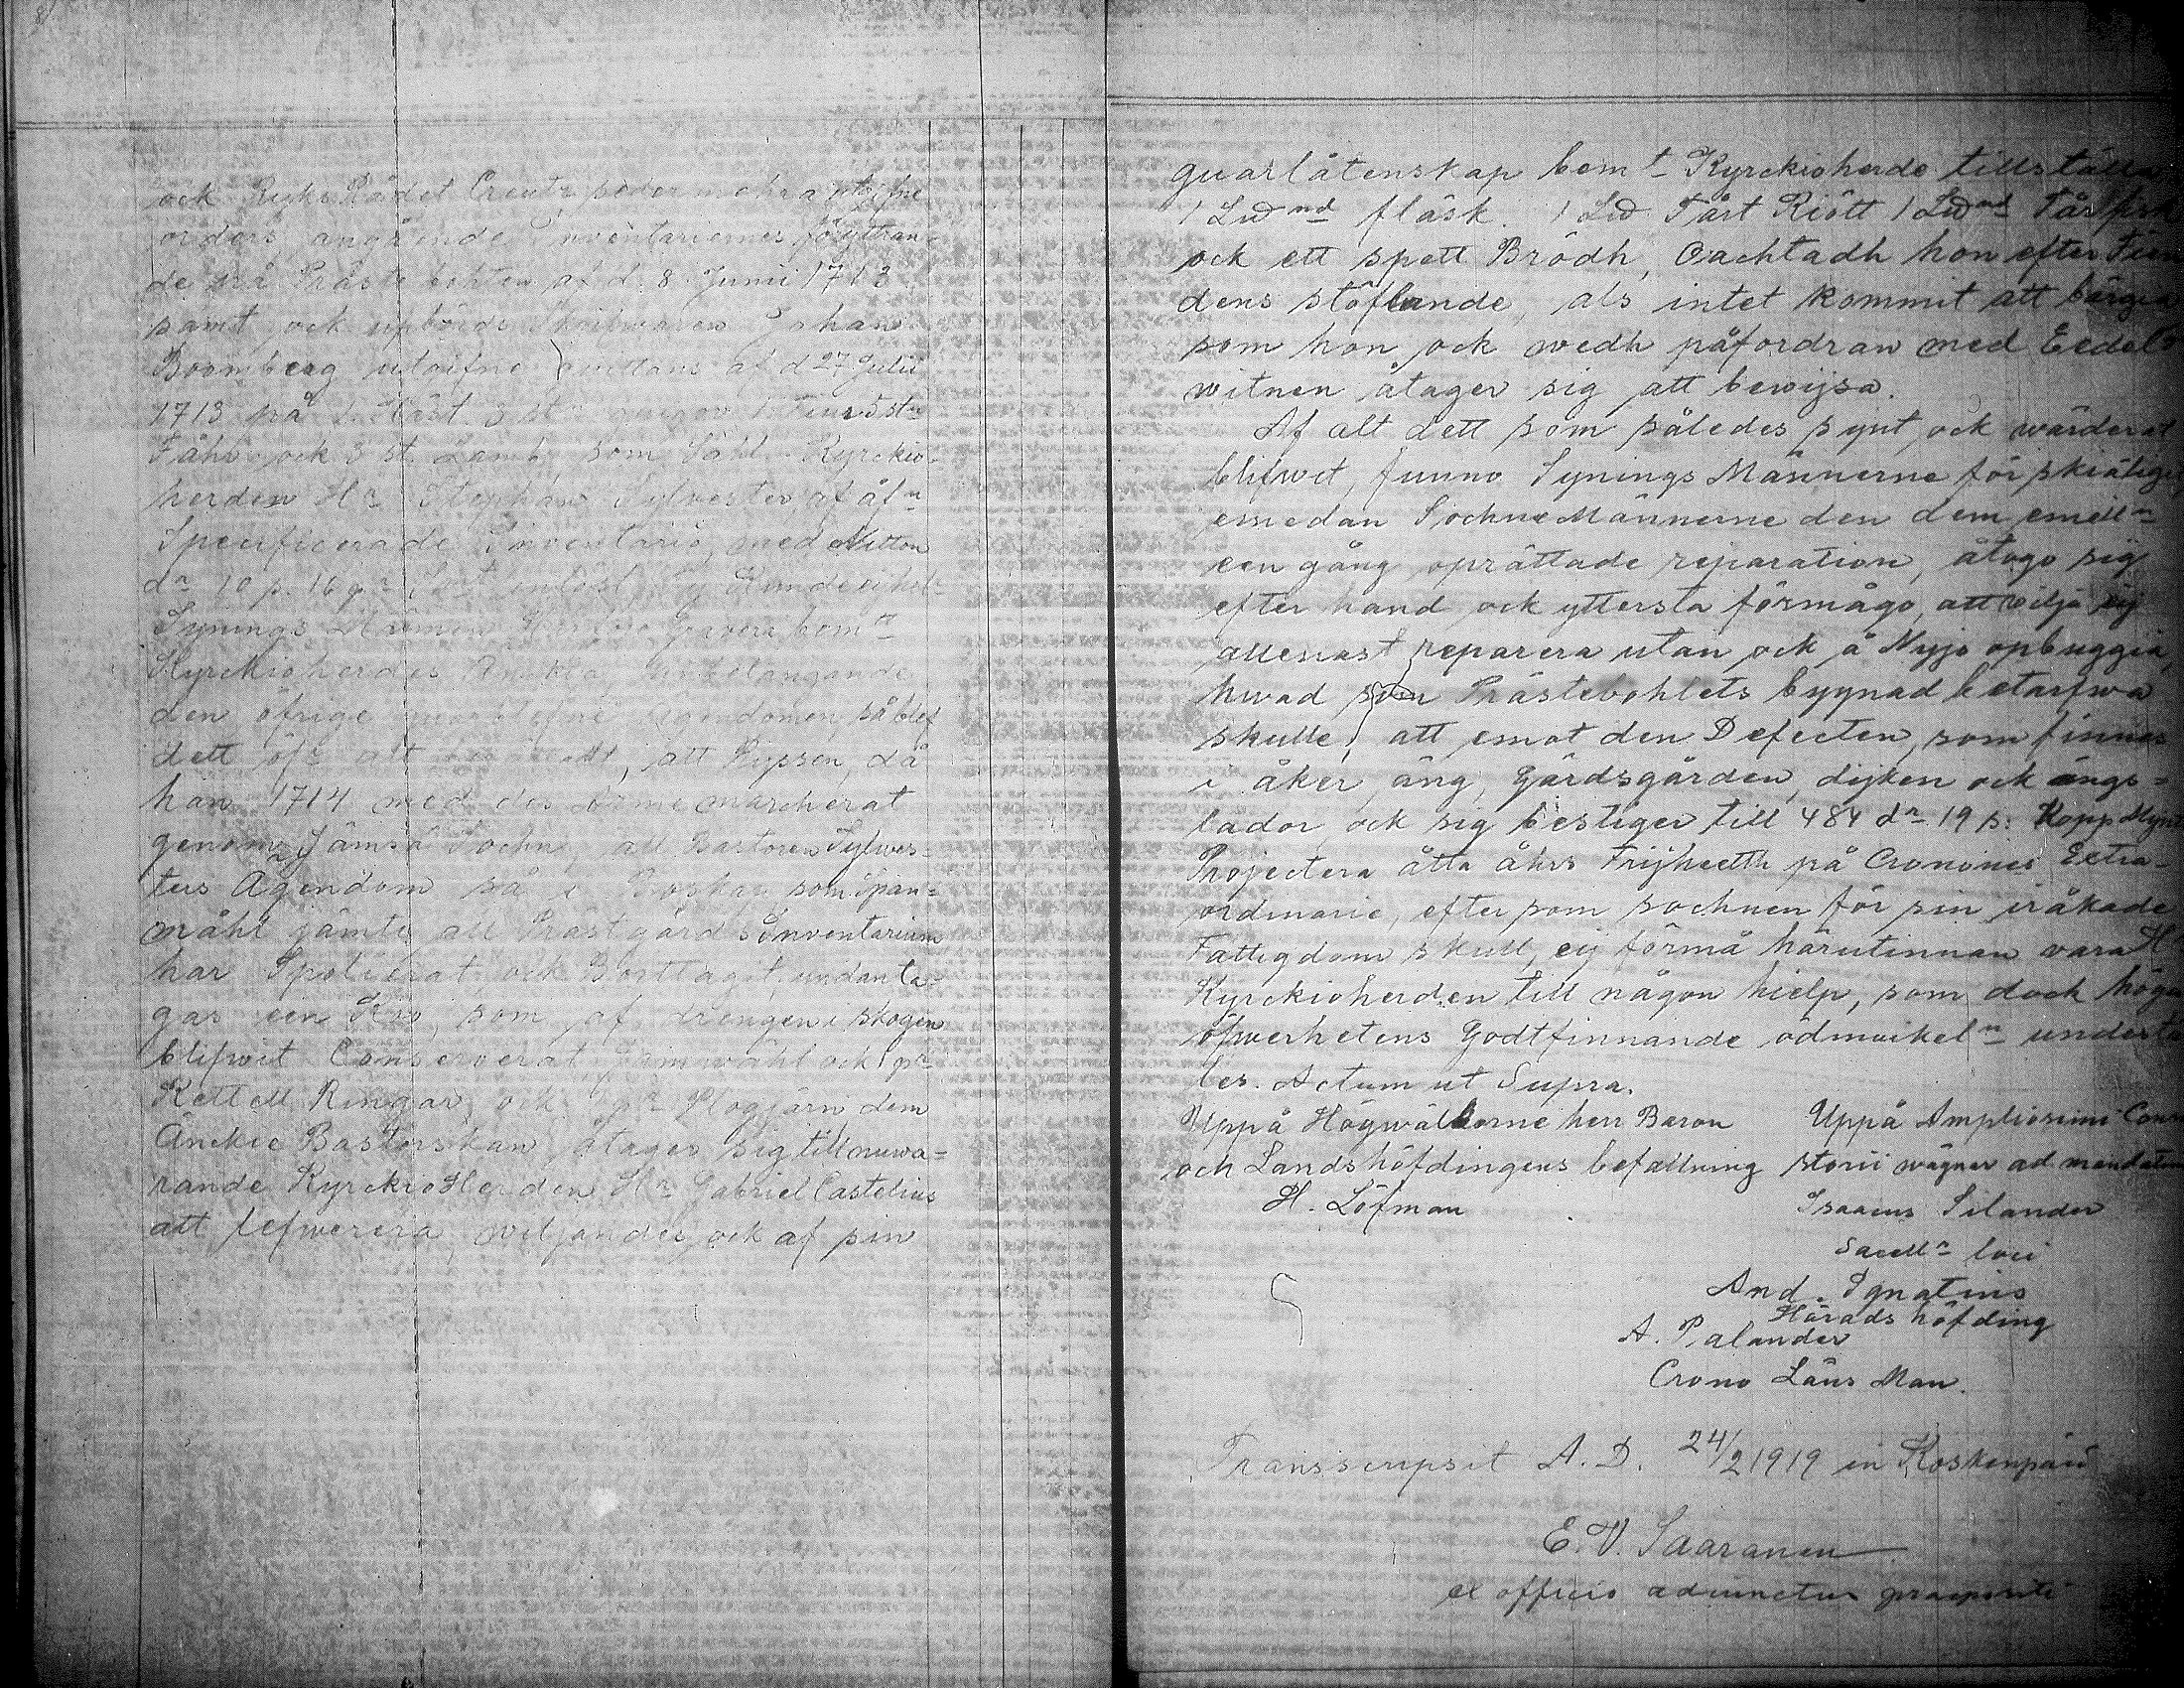 8
ock Rijks Rådet Creutz, sedermehra utgifne
orders angående Inventariernes föryttran-
de på Prästebohlen af d. 8 Junii 1713
samt ock upbörds Skrifwaren Johan
Boomberg utgifne quittans af d 27 Julii
1713 på 1 Häst 3 st quigor 1 Tiur 5 st
Fåhr ock 3 st Lamb, som Sahl. Kyrckio-
herden Hr Stephan Sylvester af åfn
Specificerade Inventario, med Nitton
dr 10 p. 16 Kunde ej
Synings Männen
Kyrckioherdes anbelangande
den öfrige Ägendomen, så blef
dett att, att Ryssen, då
han 1714 med des Arme marcherat
genom Jämsä Sochn, all Pastoren Sylwes-
ters Ägendom så i Boskap som Span=
måhl jämte all Prästgårds Inventarium
har Spolierat ock Borttagit, undanta-
gas een Koo, som af drengen i skogen
blifwit Conserverat, ock 1 pr
Kettell Ringar, ock 1 pr Plogjärn dem
Änckie Pastorskan åtager sig till nuwa=
rande KyrckioHerden Hr Gabriel Castelius
att lefwerera, wiljandes ock af sin
quarlåtenskap bemt Kyrckioherde tillställa
1 L℔nd fläsk. 1 L℔ Tårt Kiött 1 L℔nd Tår fisk
ock ett spett Brödh, Oachtadh hon efter Fien
dens ströfande, als intet kommit att bärga
som hon ock wedh påfordran med Eedel:
witnen åtager sig att bewijsa.
Af alt dett som således synt, ock wärderat
blifwit, funno Synings Männerne för skiäligt
emedan SochneMännerne den dem emelln
een gång oprättade reparation, åtogo sig
efter hand ock yttersta förmågo, att wilja ej
allenast reparera utan ock å Nyjo opbyggia,
hwad som Prästebohlets byggnad betarfwa
skulle, att emot den Defecten, som finnes
i åker, äng, Gärdsgården, dijken ock ängs=
lador, ock sig bestiger till 484 dr 19 p: KoppMynt
Projectera åtta åhrs Frijheeth på Cronones Extra-
ordinarie, eftersom sochnen för sin iråkade
Fattigdom skull, eij förmå härutinnan vara H
Kyrckioherden till någon hielp, som dock höga
öfwerhetens Godtfinnande ödmiukeln understäl
les. Actum ut Supra.
Uppå Högwälborne herr Baron
och Landshöfdingens befallning
H. Löfman
Uppå Amplissimi Consi
storii wägnar ad mandatum
Isaacus Silander
Sacelln loci
And. Ignatius
Härads höfding
A. Palander
Crono Läns Man.
Transscripsit A. D. 24/2 1919 in Koskenpää
E. V. Saaranen
ex officio adiunctus praepositi